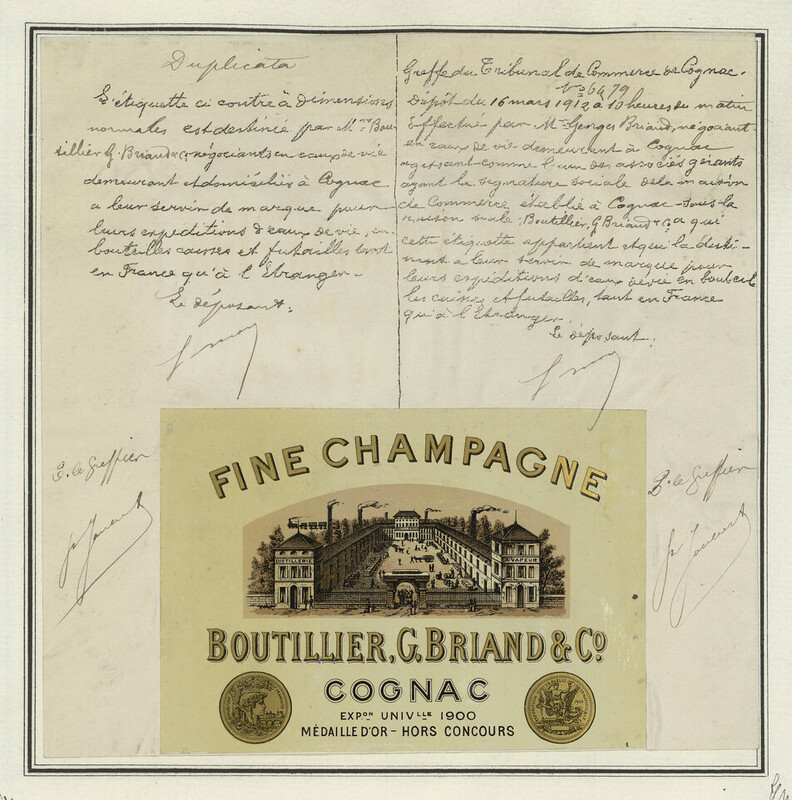 Duplicata
L'étiquette ci contre à dimensions
normales est destinée par Mrs Bou-
tillier G. Briand & Co négociants en eaux de vie
demeurant et domiciliés à Cognac
a leur servir de marque pour
leurs expéditions d'eaux de vie, en
bouteilles caisses et futailles tant
en France qu'à l'Etranger.
Le déposant:
Greffe du Tribunal de Commerce de Cognac.
No 6479
Dépôt du 16 mars 1912 à 10 heures du matin
Effectué par M. Georges Briand, négociant
en eaux de vie demeurant à Cognac
agissant comme l'un des associés gérants
ayant la signature sociale de la maison
de Commerce établie à Cognac sous la
raison sociale: Boutillier, G. Briand & Co a qui
cette étiquette appartient et qui la desti-
nent à leur servir de marque pour
leurs expéditions d'eaux de vie en bouteil-
les caisses et futailles, tant en France
qu'à l'Etranger.
Le déposant:
P. le Greffier
P. le Greffier
FINE CHAMPAGNE
DISTILLERIE
A VAPEUR
BOUTILLIER, G. BRIAND & Co
COGNAC
EXPON UNIVLLE 1900
MÉDAILLE D'OR - HORS CONCOURS